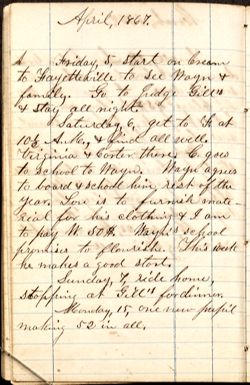 April, 1867.
Friday, 5, start on Cream
to Fayetteville to see Wayn &
family. Go to Judge Gill's
& stay all night.
Saturday, 6, get to F. at
10½ A.M., & find all well.
Virginia & Carter there. C. goes
to school to Wayn. Wayn agrees
to board & school him, rest of the
year. Lou is to furnish mate
rial for his clothing & I am
to pay W. 50$. Wayn's school
promises to flourish. This week
he makes a good start.
Sunday, 7, ride home,
stopping at Gill's for dinner.
Monday, 15, one new pupil
making 52 in all.